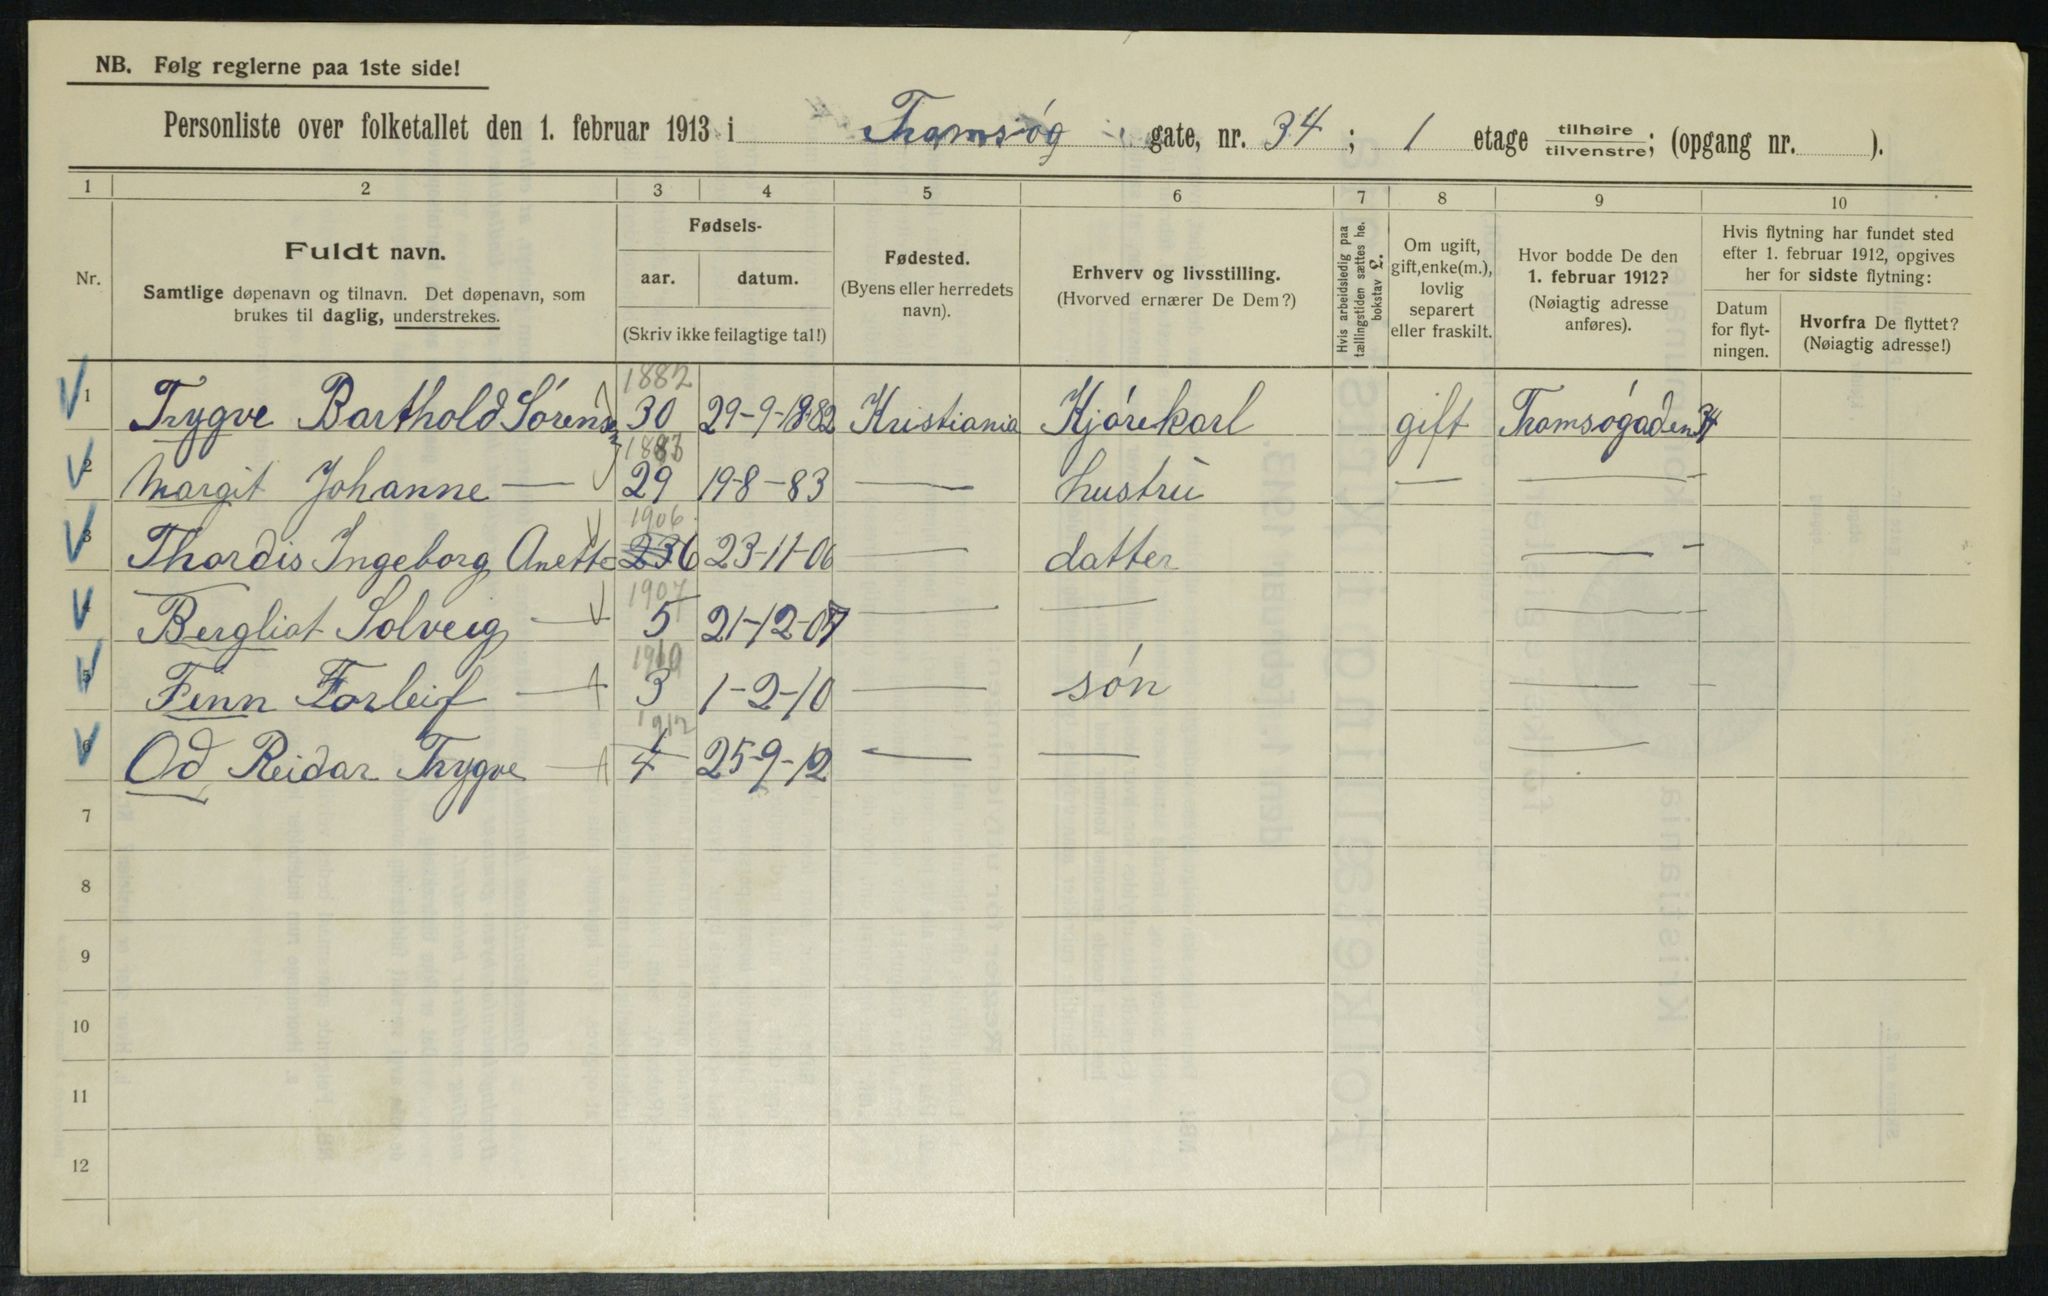 NB. Følg reglerne paa 1ste side!
Personliste over folketallet den 1. februar 1913 i Tromsøg gate, nr. 34; 1 etage tilhøire tilvenstre; (opgang nr. ).
1 2 3 4 5 6 7 8 9 10
Nr.
Fuldt navn.
Samtlige døpenavn og tilnavn. Det døpenavn, som
brukes til daglig, understrekes.
Fødsels-
aar. datum.
(Skriv ikke feilagtige tal!)
Fødested.
(Byens eller herredets
navn).
Erhverv og livsstilling.
(Hvorved ernærer De Dem?)
Hvis arbeidsledig paa
tællingstiden sættes he.
bokstav L.
Om ugift,
gift, enke(m.),
lovlig
separert
eller fraskilt.
Hvor bodde De den
1. februar 1912?
(Nøiagtig adresse
anføres).
Hvis flytning har fundet sted
efter 1. februar 1912, opgives
her for sidste flytning:
Datum
for flyt-
ningen.
Hvorfra De flyttet?
(Nøiagtig adresse!)
1882
1 Trygve Barthold Sørensen 30 29-9-1882 Kristiania Kjørekarl gift Tromsøgaden 34
1883
2 Margit Johanne — 29 19-8-83 — hustru — —
1906
3 Thordis Ingeborg Anette 236 23-11-06 — datter —
1907
4 Bergliot Solveig — 5 21-12-07 — — —
1910
5 Finn Torleif — 3 1-2-10 — søn —
1912
6 Od Reidar Trygve — 4 25-9-12 — — —
7
8
9
10
11
12